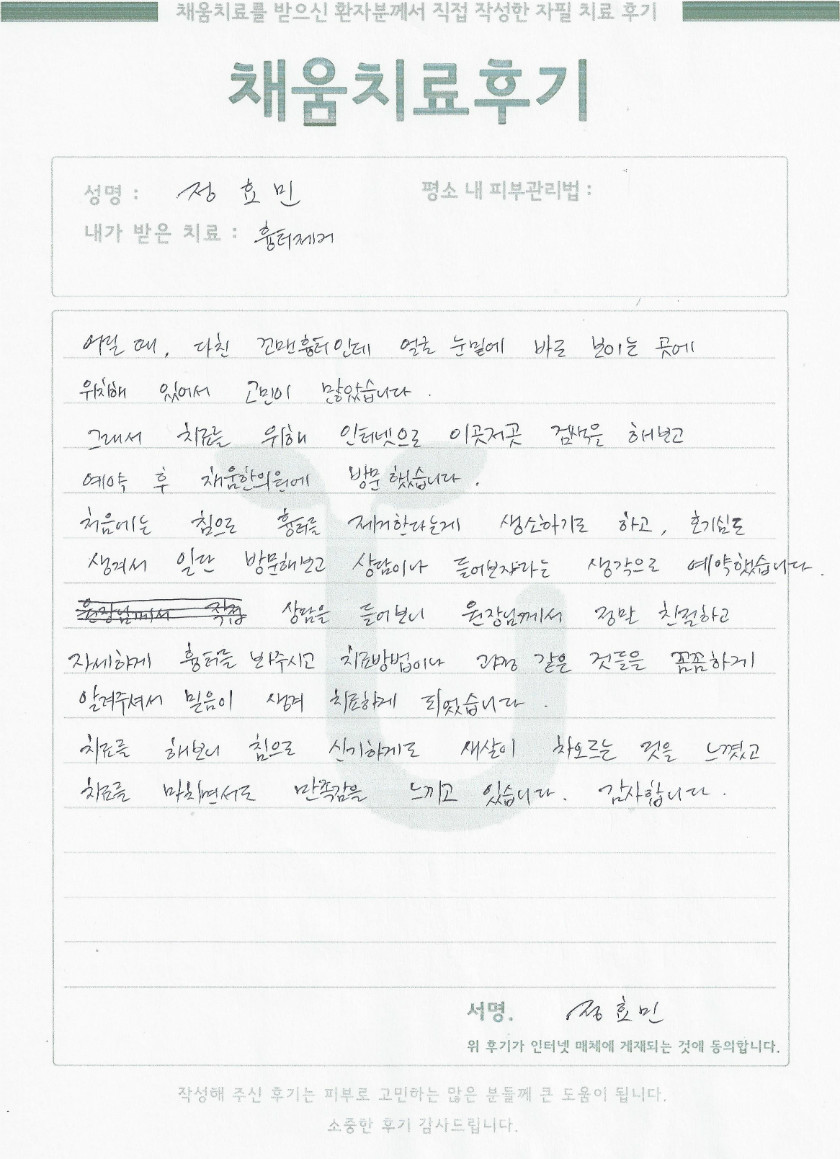 채움치료를 받으신 환자분께서 직접 작성한 자필 치료 후기
채움치료후기
성명 : 정효민 평소 내 피부관리법 :
내가 받은 치료 : 흉터제거
어릴 때, 다친 꼬맨흉터인데 얼굴 눈밑에 바로 보이는 곳에
위치해 있어서 고민이 많았습니다.
그래서 치료를 위해 인터넷으로 이곳저곳 검색을 해보고
예약 후 채움한의원에 방문했습니다.
처음에는 침으로 흉터를 제거한다는게 생소하기도 하고, 호기심도
생겨서 일단 방문해보고 상담이나 들어보자라는 생각으로 예약했습니다.
원장님께서 직접 상담을 들어보니 원장님께서 정말 친절하고
자세하게 흉터를 봐주시고 치료방법이나 과정 같은 것들을 꼼꼼하게
알려주셔서 믿음이 생겨 치료하게 되었습니다.
치료를 해보니 침으로 신기하게도 새살이 차오르는 것을 느꼈고
치료를 마치면서도 만족감을 느끼고 있습니다. 감사합니다.
서명. 정효민
위 후기가 인터넷 매체에 게재되는 것에 동의합니다.
작성해 주신 후기는 피부로 고민하는 많은 분들께 큰 도움이 됩니다.
소중한 후기 감사드립니다.